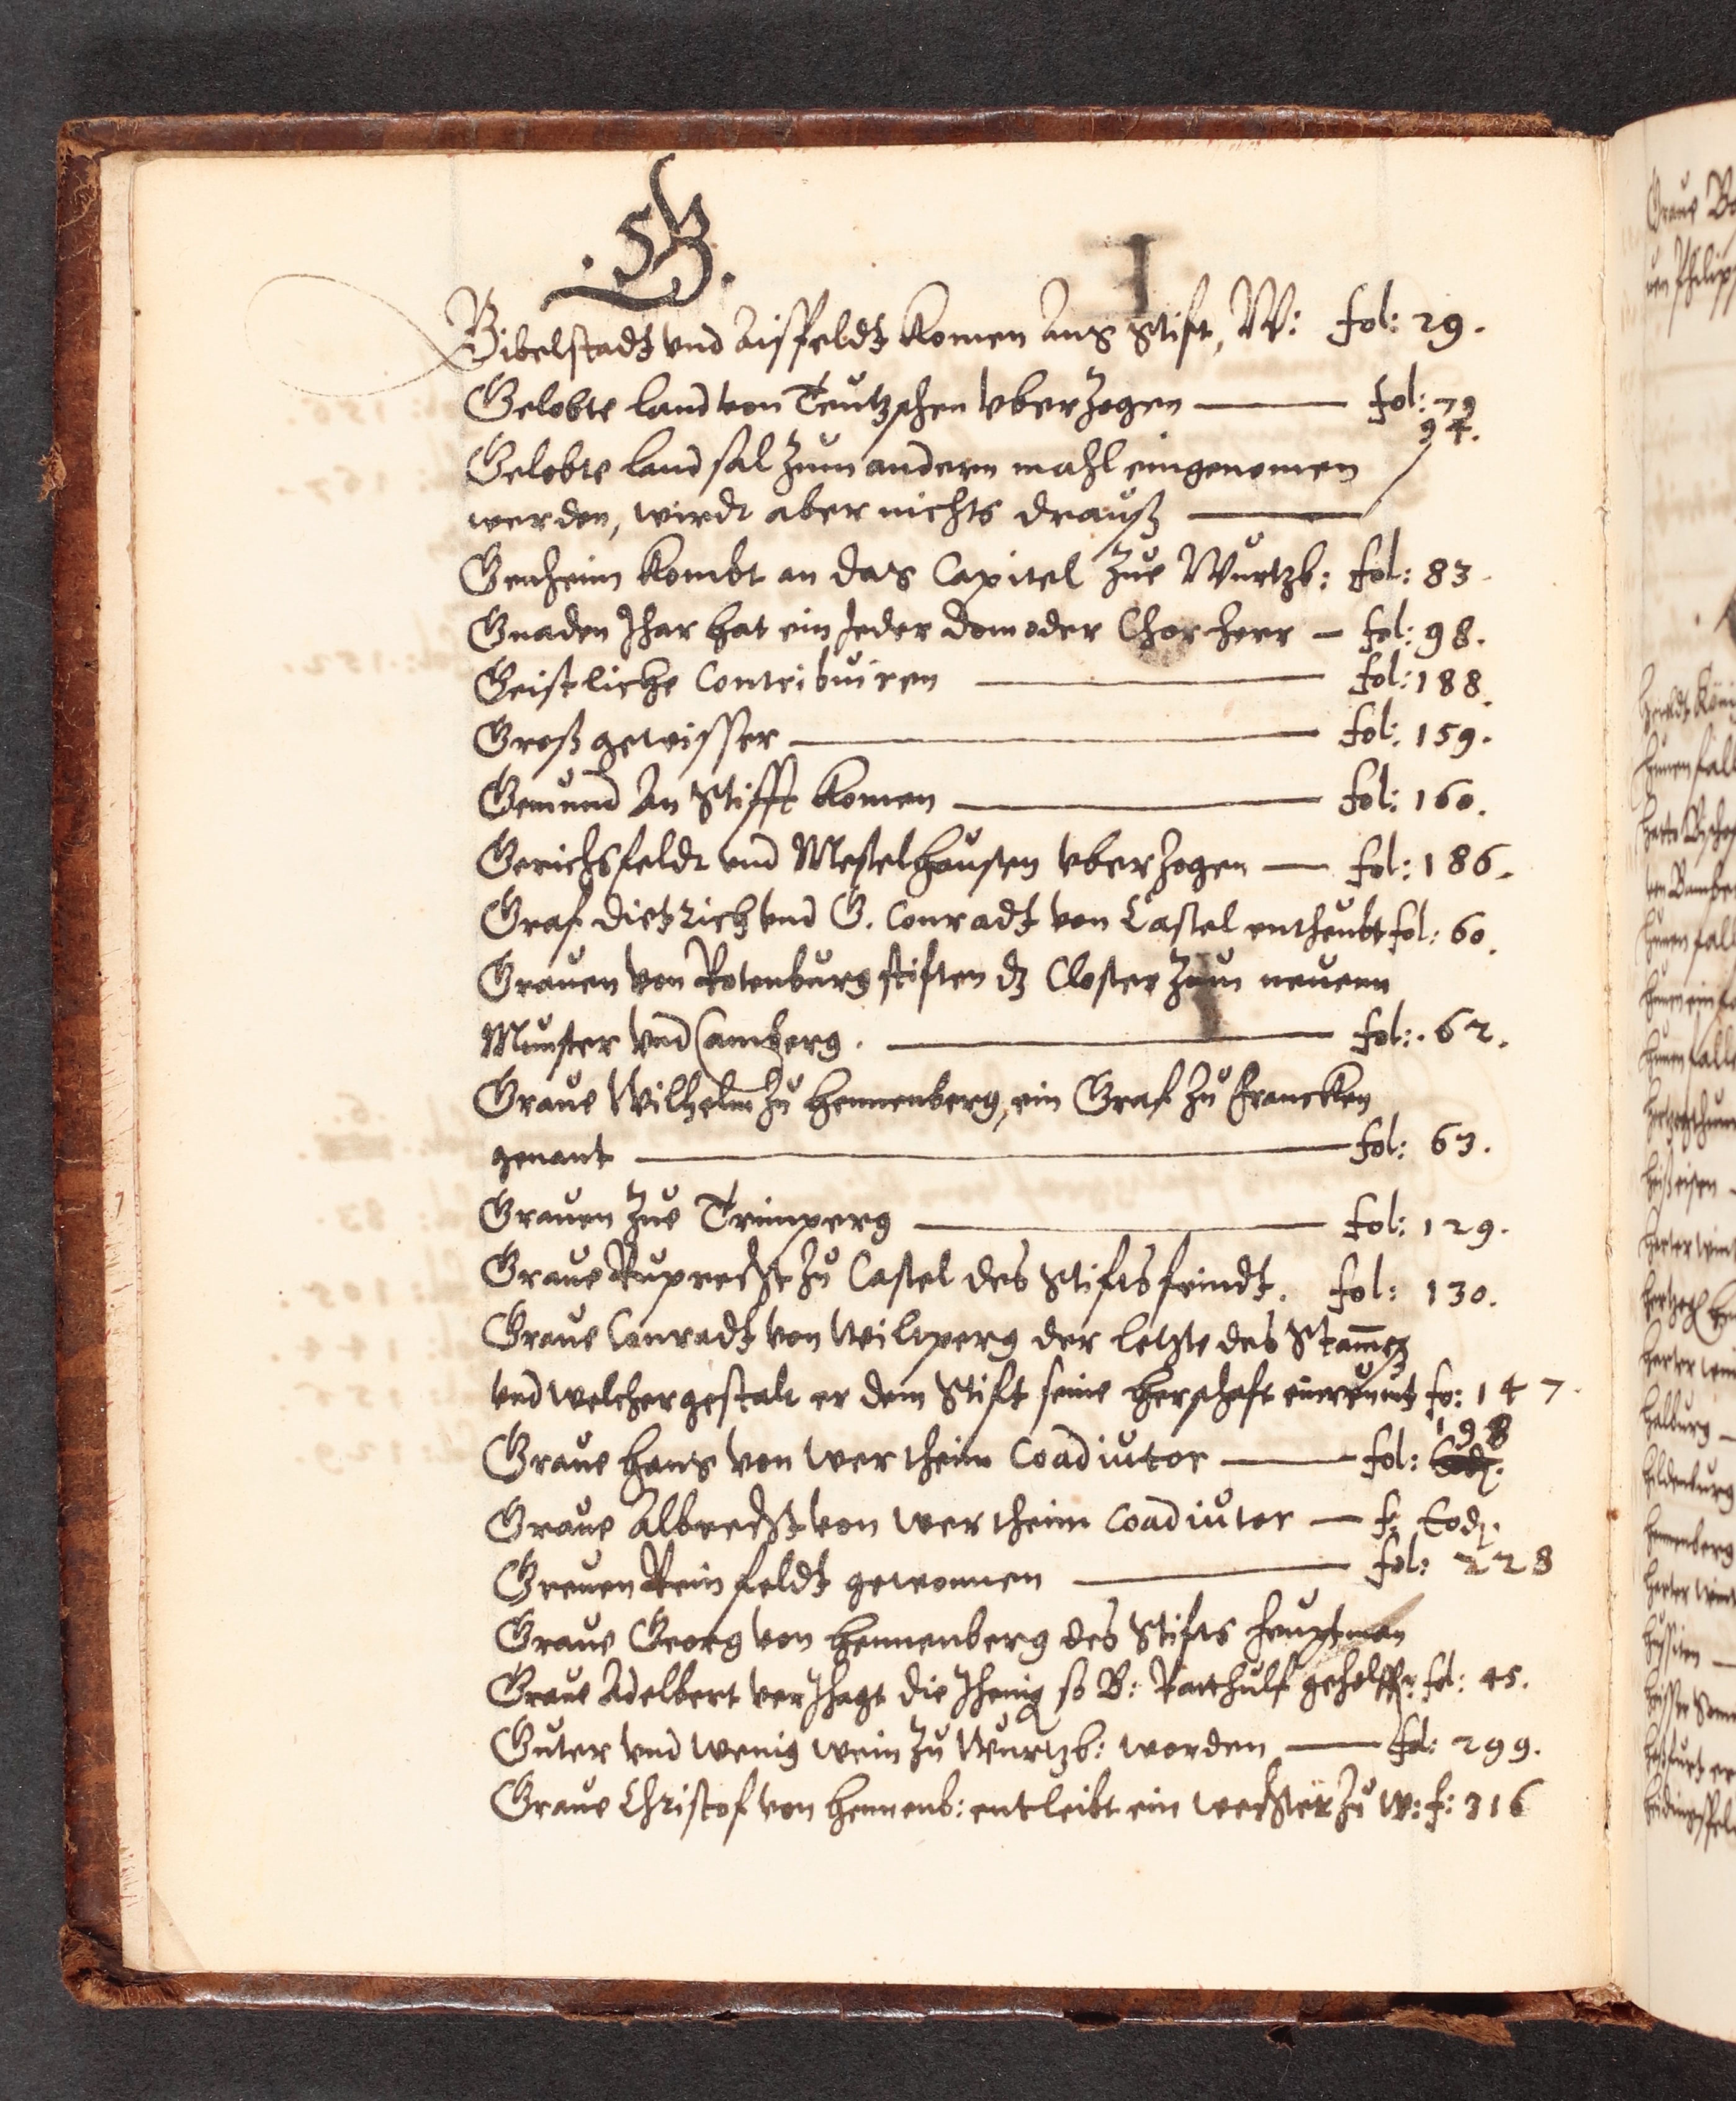 .G.
Gibelstadt vnd Eisfeldt komen ans Stift, W: fol: 29.
Gelobte land von Teutzschen vberzogen — fol: 79
94.
Gelobte land sal zum andern mahl eingenomen
werden, wirdt aber nichts drauß —
Genheim kombt an das Capitel zue Wurtzb: fol: 83.
Gnaden Jhar hat ein Jeder dom oder Chorherr — fol: 98.
Geistliche Contribuiren — fol: 188.
Groß gewisser — fol: 159.
Gemund an Stifft komen — fol: 160.
Gerichsfeldt vnd Meselhausen vberzogen — fol: 186.
Graf dietrich vnd G. Conradt von Castel entheubt fol: 60.
Grauen von Rotenburg stiften dz Closter zum neuenn
Munster vnd Camberg. — fol: 62.
Graue Wilhelm zu Hennenberg, ein Graf zu Francken
genant — fol: 63.
Grauen zue Trimperg — fol: 129.
Graue Ruprecht zu Castel des Stifts feindt. fol: 130.
Graue Conradt von Wiltperg der letzte des Stames
vnd welcher gestalt er dem Stift seine herschaft fo: 147.
198
Graue Hans von Wertheim Coadiutor — fol: Eod.
Graue Albrecht von Wertheim Coadiutor — f: Eod.
Greuen Reinfeldt gewonnen — fol: 228
Graue Georg von Hennenberg des Stifts heuptman
Graue Adelbert verJhagt die Jhenig so B: geholffen fol: 45.
Guter vnd wenig wein zu Wurtzb: worden — fol: 299.
Graue Christof von Hennenb: entleibt ein wechter zu W: f: 316